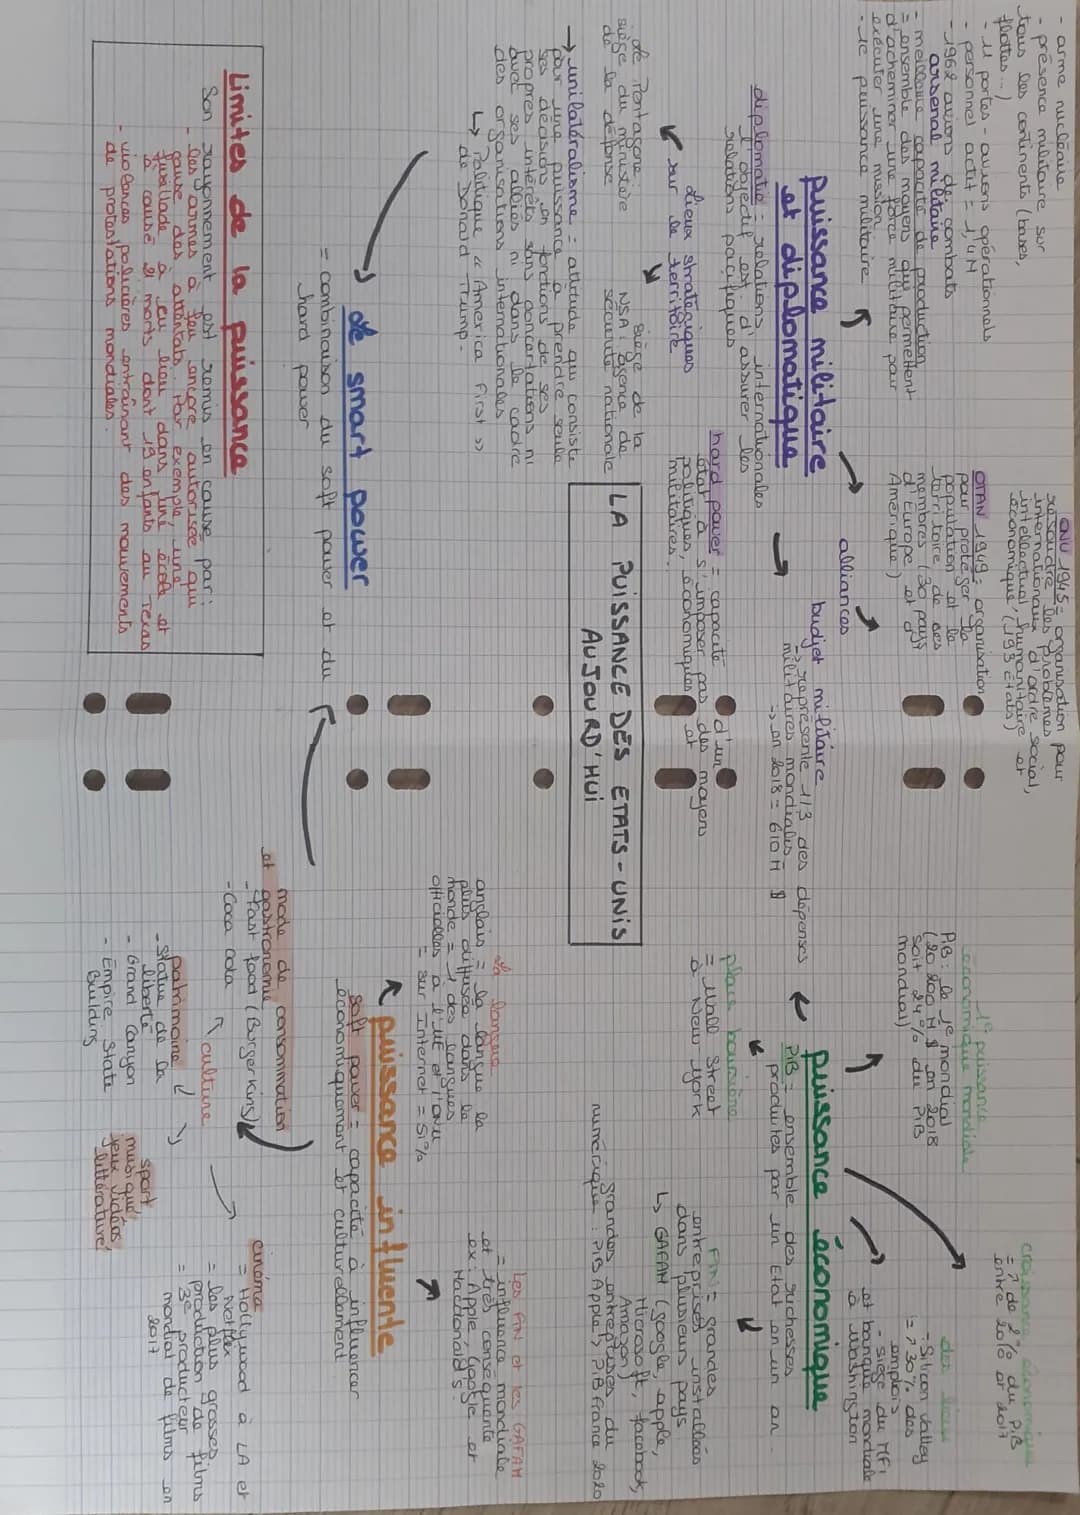 LA PUISSANCE DES ETATS-UNIS
AUJOURD'HUI
puissance militaire
et diplomatique
- arme nucléaire
- présence militaire sur
tous les continents (bases,
flottes...)
- 11 portes-avions opérationnels
- personnel actif = 1,4M
- 1962 avions de combats
arsenal militaire
- meilleure capacité de production
= ensemble des moyens qui permettent
d'acheminer une force militaire pour
exécuter une mission
- 1e puissance militaire
ONU 1945 = organisation pour
résoudre les problèmes
internationaux d'ordre social,
intellectuel, humanitaire et
économique, (193 Etats)
OTAN 1949 = organisation
pour protéger la
population et le
territoire de ses
membres (30 pays
d'Europe et d'
Amérique)
alliances
budjet militaire
=> représente 1/3 des dépenses
militaires mondiales
-> en 2018 = 610 M $
diplomatie = relations internationales
l'objectif est d'assurer les
relations pacifiques
hard power = capacité d'un
état à s'imposer par des moyens
politiques, économiques et
militaires.
Lieux stratégiques
sur le territoire
Le Pentagone :
siège du ministère
de la défense
siège de la
NSA : agence de
sécurité nationale
→ unilatéralisme = attitude qui consiste
pour une puissance à prendre seule
ses décisions en fonctions de ses
propres intérêts sans concertations ni
avec ses alliés ni dans le cadre
des organisations internationales
↳ Politique « America First »
de Donald Trump.
Le smart power
= combinaison du soft power et du
hard power
Limites de la puissance
Son rayonnement est remis en cause par :
- les armes à feu encore autorisée qui
cause des attentats. Par exemple, une
fusillade à eu lieu dans une école et
à causé 21 morts dont 19 enfants au Texas
- violences policières entraînant des mouvements
de protestations mondiales.
puissance économique
1e puissance
économique mondiale
PiB : le 1e mondial
(20 200 M $ en 2018
soit 24% du PiB
mondial)
croissance économique
= ↗ de 2% du PiB
entre 2016 et 2017
des lieux
= Silicon Valley
= ↗ 30% des
emplois
- siège du MFi
et banque mondiale
à Washington
PiB = ensemble des richesses
produites par un Etat en un an.
place boursière
= Wall Street
à New York
FiN = grandes
entreprises installées
dans plusieurs pays
↳ GAFAM (google, apple,
Microsoft, facebook,
Amazon)
grandes entreprises du
numérique : PiB Apple > PiB France 2020
puissance influente
soft power = capacité à influencer
économiquement et culturellement
la langue
anglais = la langue la
plus diffusée dans le
monde = 1 des langues
officielles à l'UE et l'ONU
= sur Internet = 51%
Les FiN et les GAFAM
= influence mondiale
et très conséquente
ex : Apple, Google et
MacDonald's
mode de consommation
et gastronomie
- Fast food (Burger Kins)
- Coca cola
culture
patrimoine
- Statue de la
liberté
- Grand Canyon
- Empire State
Building
sport,
musique,
jeux vidéos,
littérature
cinéma
= Hollywood à LA et
Netflix
= les plus grosses
production de films
= 3e producteur
mondial de films en
2017